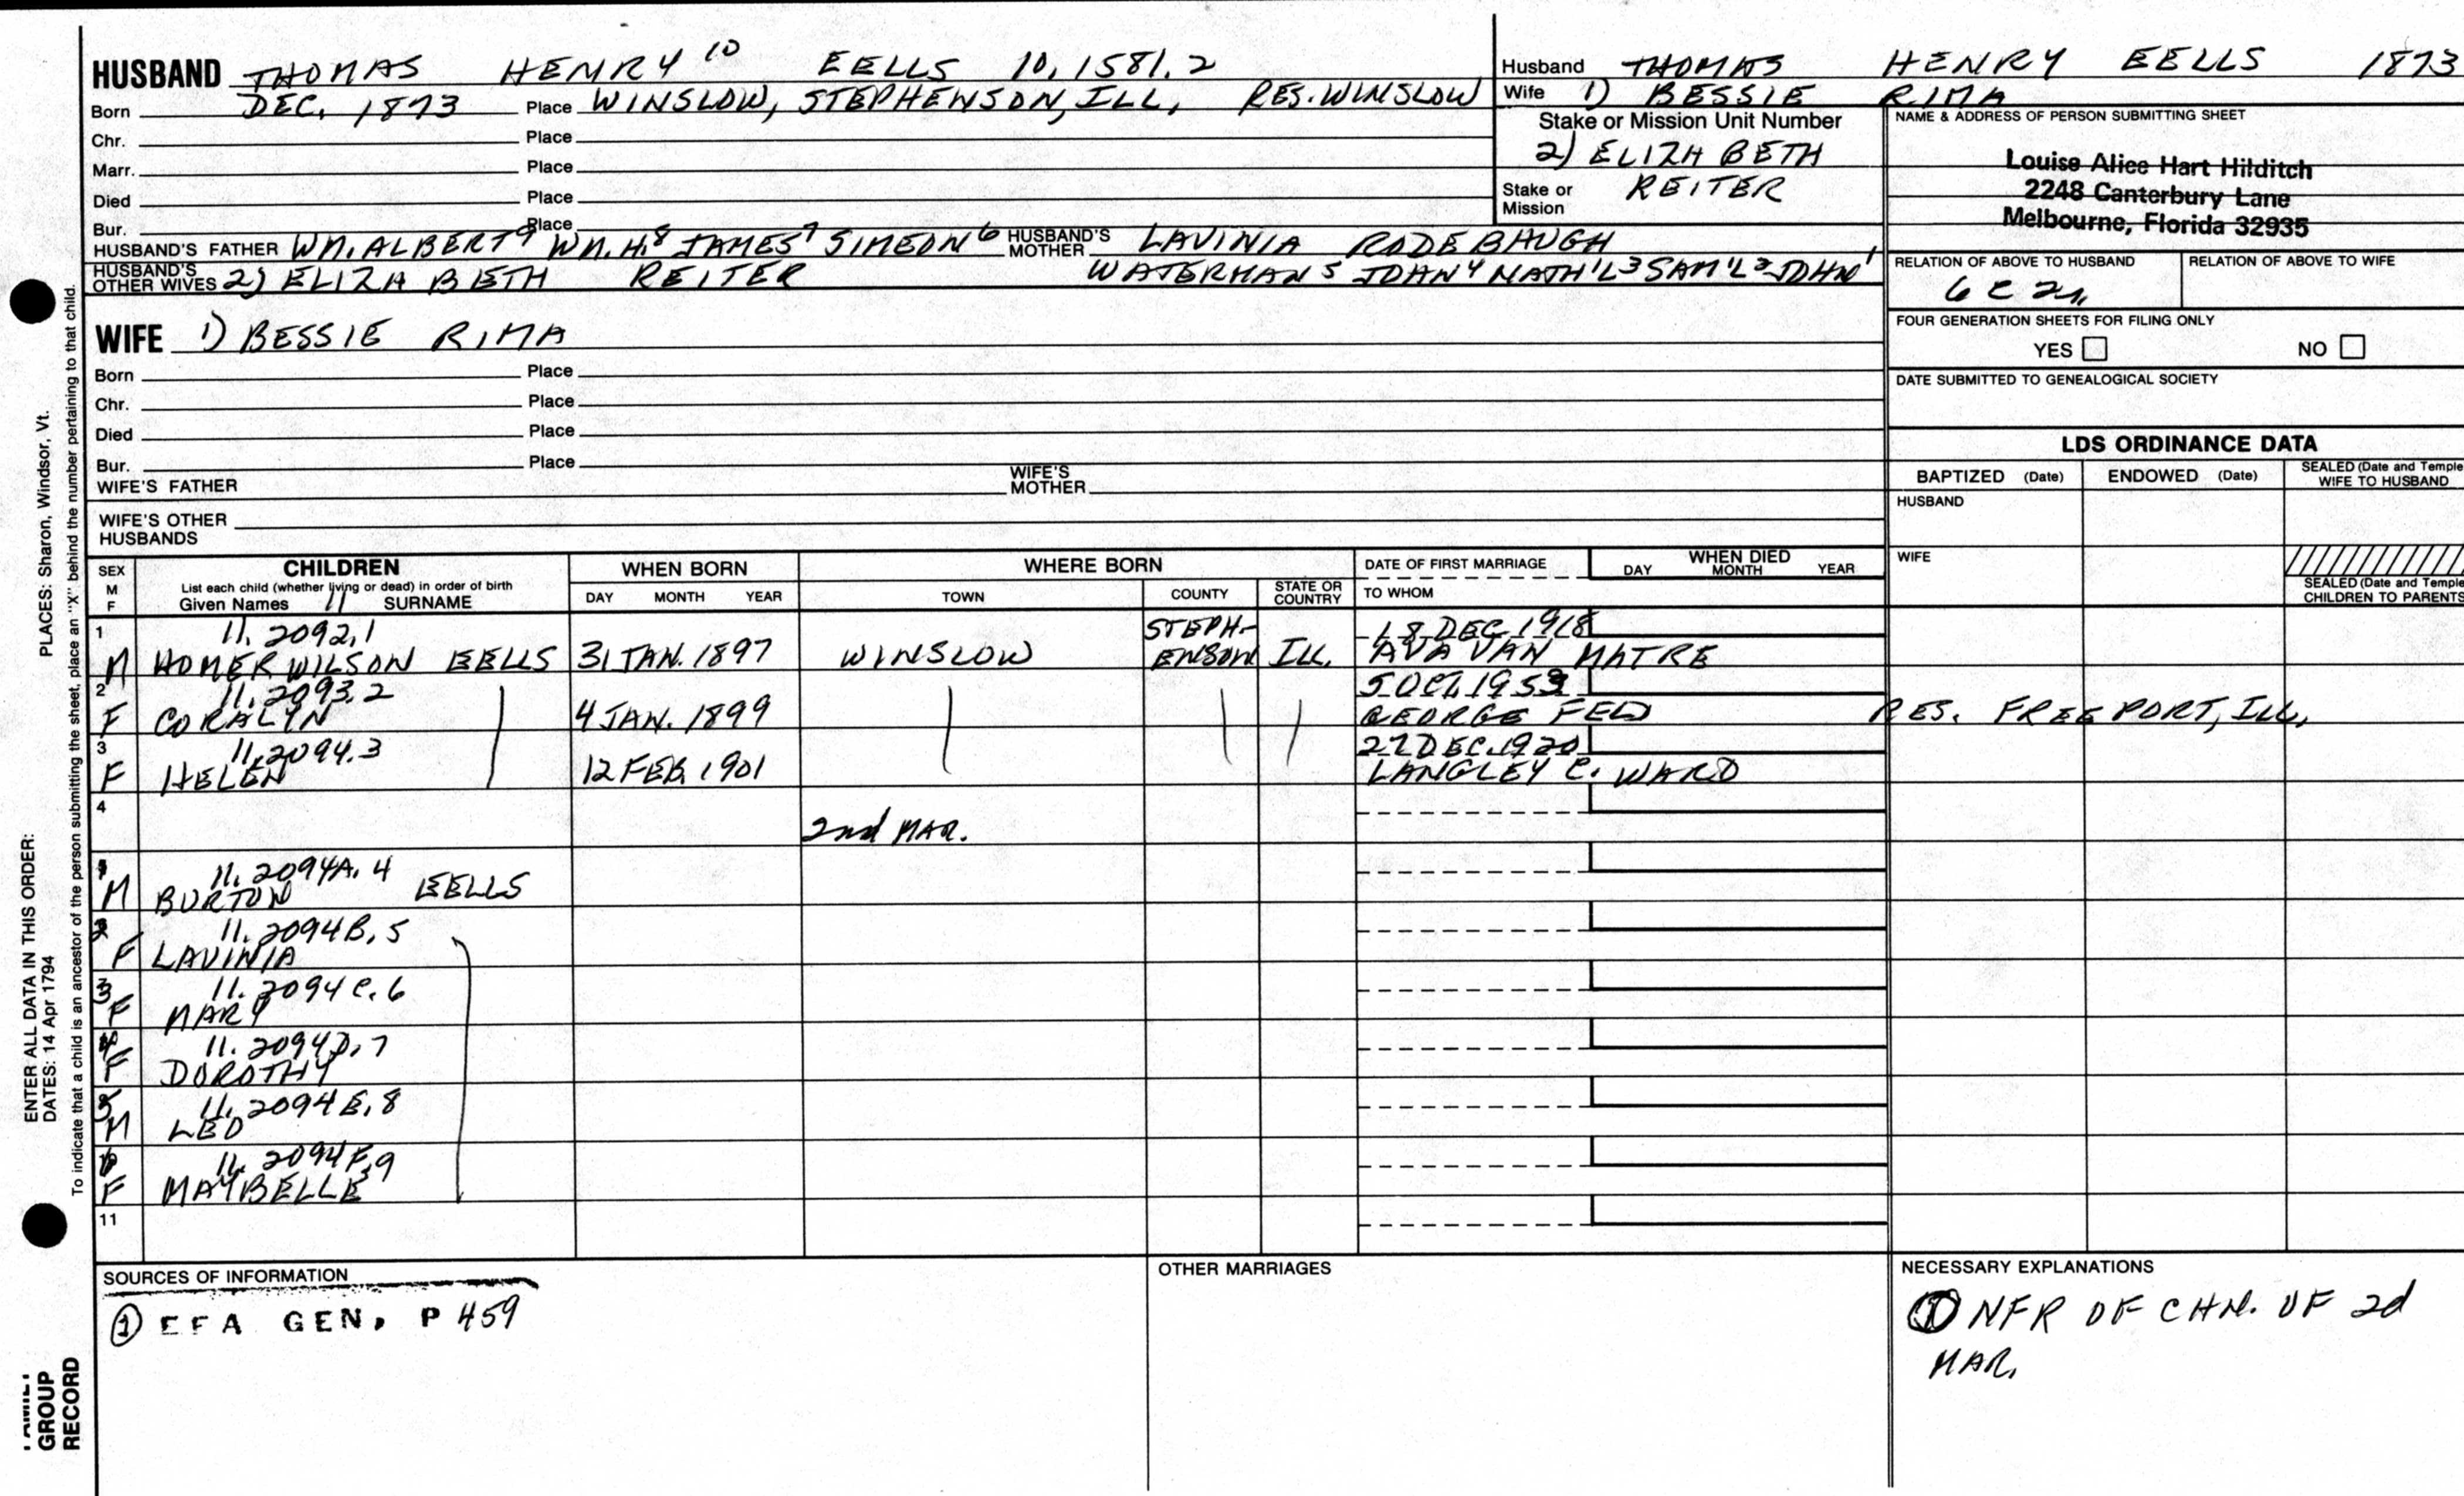 HUSBAND THOMAS HENRY 10 EELLS 10,1581.2
Born DEC. 1873 Place WINSLOW, STEPHENSON, ILL, RES. WINSLOW
Chr. Place
Marr. Place
Died Place
Bur. Place
HUSBAND'S FATHER WM. ALBERT9 WM. H.8 JAMES7 SIMEON6 HUSBAND'S MOTHER LAVINIA RODEBAUGH
HUSBAND'S OTHER WIVES 2) ELIZABETH REITER WATERMAN5 JOHN4 NATH'L3 SAM'L2 JOHN1
WIFE 1) BESSIE RIMA
Born Place
Chr. Place
Died Place
Bur. Place
WIFE'S FATHER WIFE'S MOTHER
WIFE'S OTHER HUSBANDS
Husband THOMAS HENRY EELLS 1873
Wife 1) BESSIE RIMA
Stake or Mission Unit Number
2) ELIZABETH
Stake or Mission REITER
NAME & ADDRESS OF PERSON SUBMITTING SHEET
Louise Alice Hart Hilditch
2248 Canterbury Lane
Melbourne, Florida 32935
RELATION OF ABOVE TO HUSBAND RELATION OF ABOVE TO WIFE
6 C 2r
FOUR GENERATION SHEETS FOR FILING ONLY
YES NO
DATE SUBMITTED TO GENEALOGICAL SOCIETY
LDS ORDINANCE DATA
BAPTIZED (Date) ENDOWED (Date) SEALED (Date and Temple) WIFE TO HUSBAND
HUSBAND
WIFE
SEALED (Date and Temple) CHILDREN TO PARENTS
SEX M F CHILDREN WHEN BORN WHERE BORN DATE OF FIRST MARRIAGE WHEN DIED
List each child (whether living or dead) in order of birth
Given Names 11 SURNAME DAY MONTH YEAR TOWN COUNTY STATE OR COUNTRY TO WHOM DAY MONTH YEAR
1 11.2092.1 STEPH- 18 DEC 1918
M HOMER WILSON EELLS 31 JAN. 1897 WINSLOW ENSON ILL. AVA VAN MATRE
2 11.2093.2 5 OCT. 1953
F CORALYN 4 JAN. 1899 GEORGE FELD RES. FREEPORT, ILL.
3 11.2094.3 27 DEC. 1920
F HELEN 12 FEB. 1901 LANGLEY C. WARD
4
2nd MAR.
11.2094A.4
M BURTON EELLS
2 11.2094B.5
F LAVINIA
3 11.2094C.6
F MARY
4 11.2094D.7
F DOROTHY
5 11.2094E.8
M LEO
6 11.2094F.9
F MAYBELLE
11
SOURCES OF INFORMATION
① EFA GEN. P 459
OTHER MARRIAGES
NECESSARY EXPLANATIONS
① NFR OF CHN. OF 2d
MAR.
ENTER ALL DATA IN THIS ORDER:
DATES: 14 Apr 1794 PLACES: Sharon, Windsor, Vt.
To indicate that a child is an ancestor of the person submitting the sheet, place an "X" behind the number pertaining to that child.
FAMILY
GROUP
RECORD